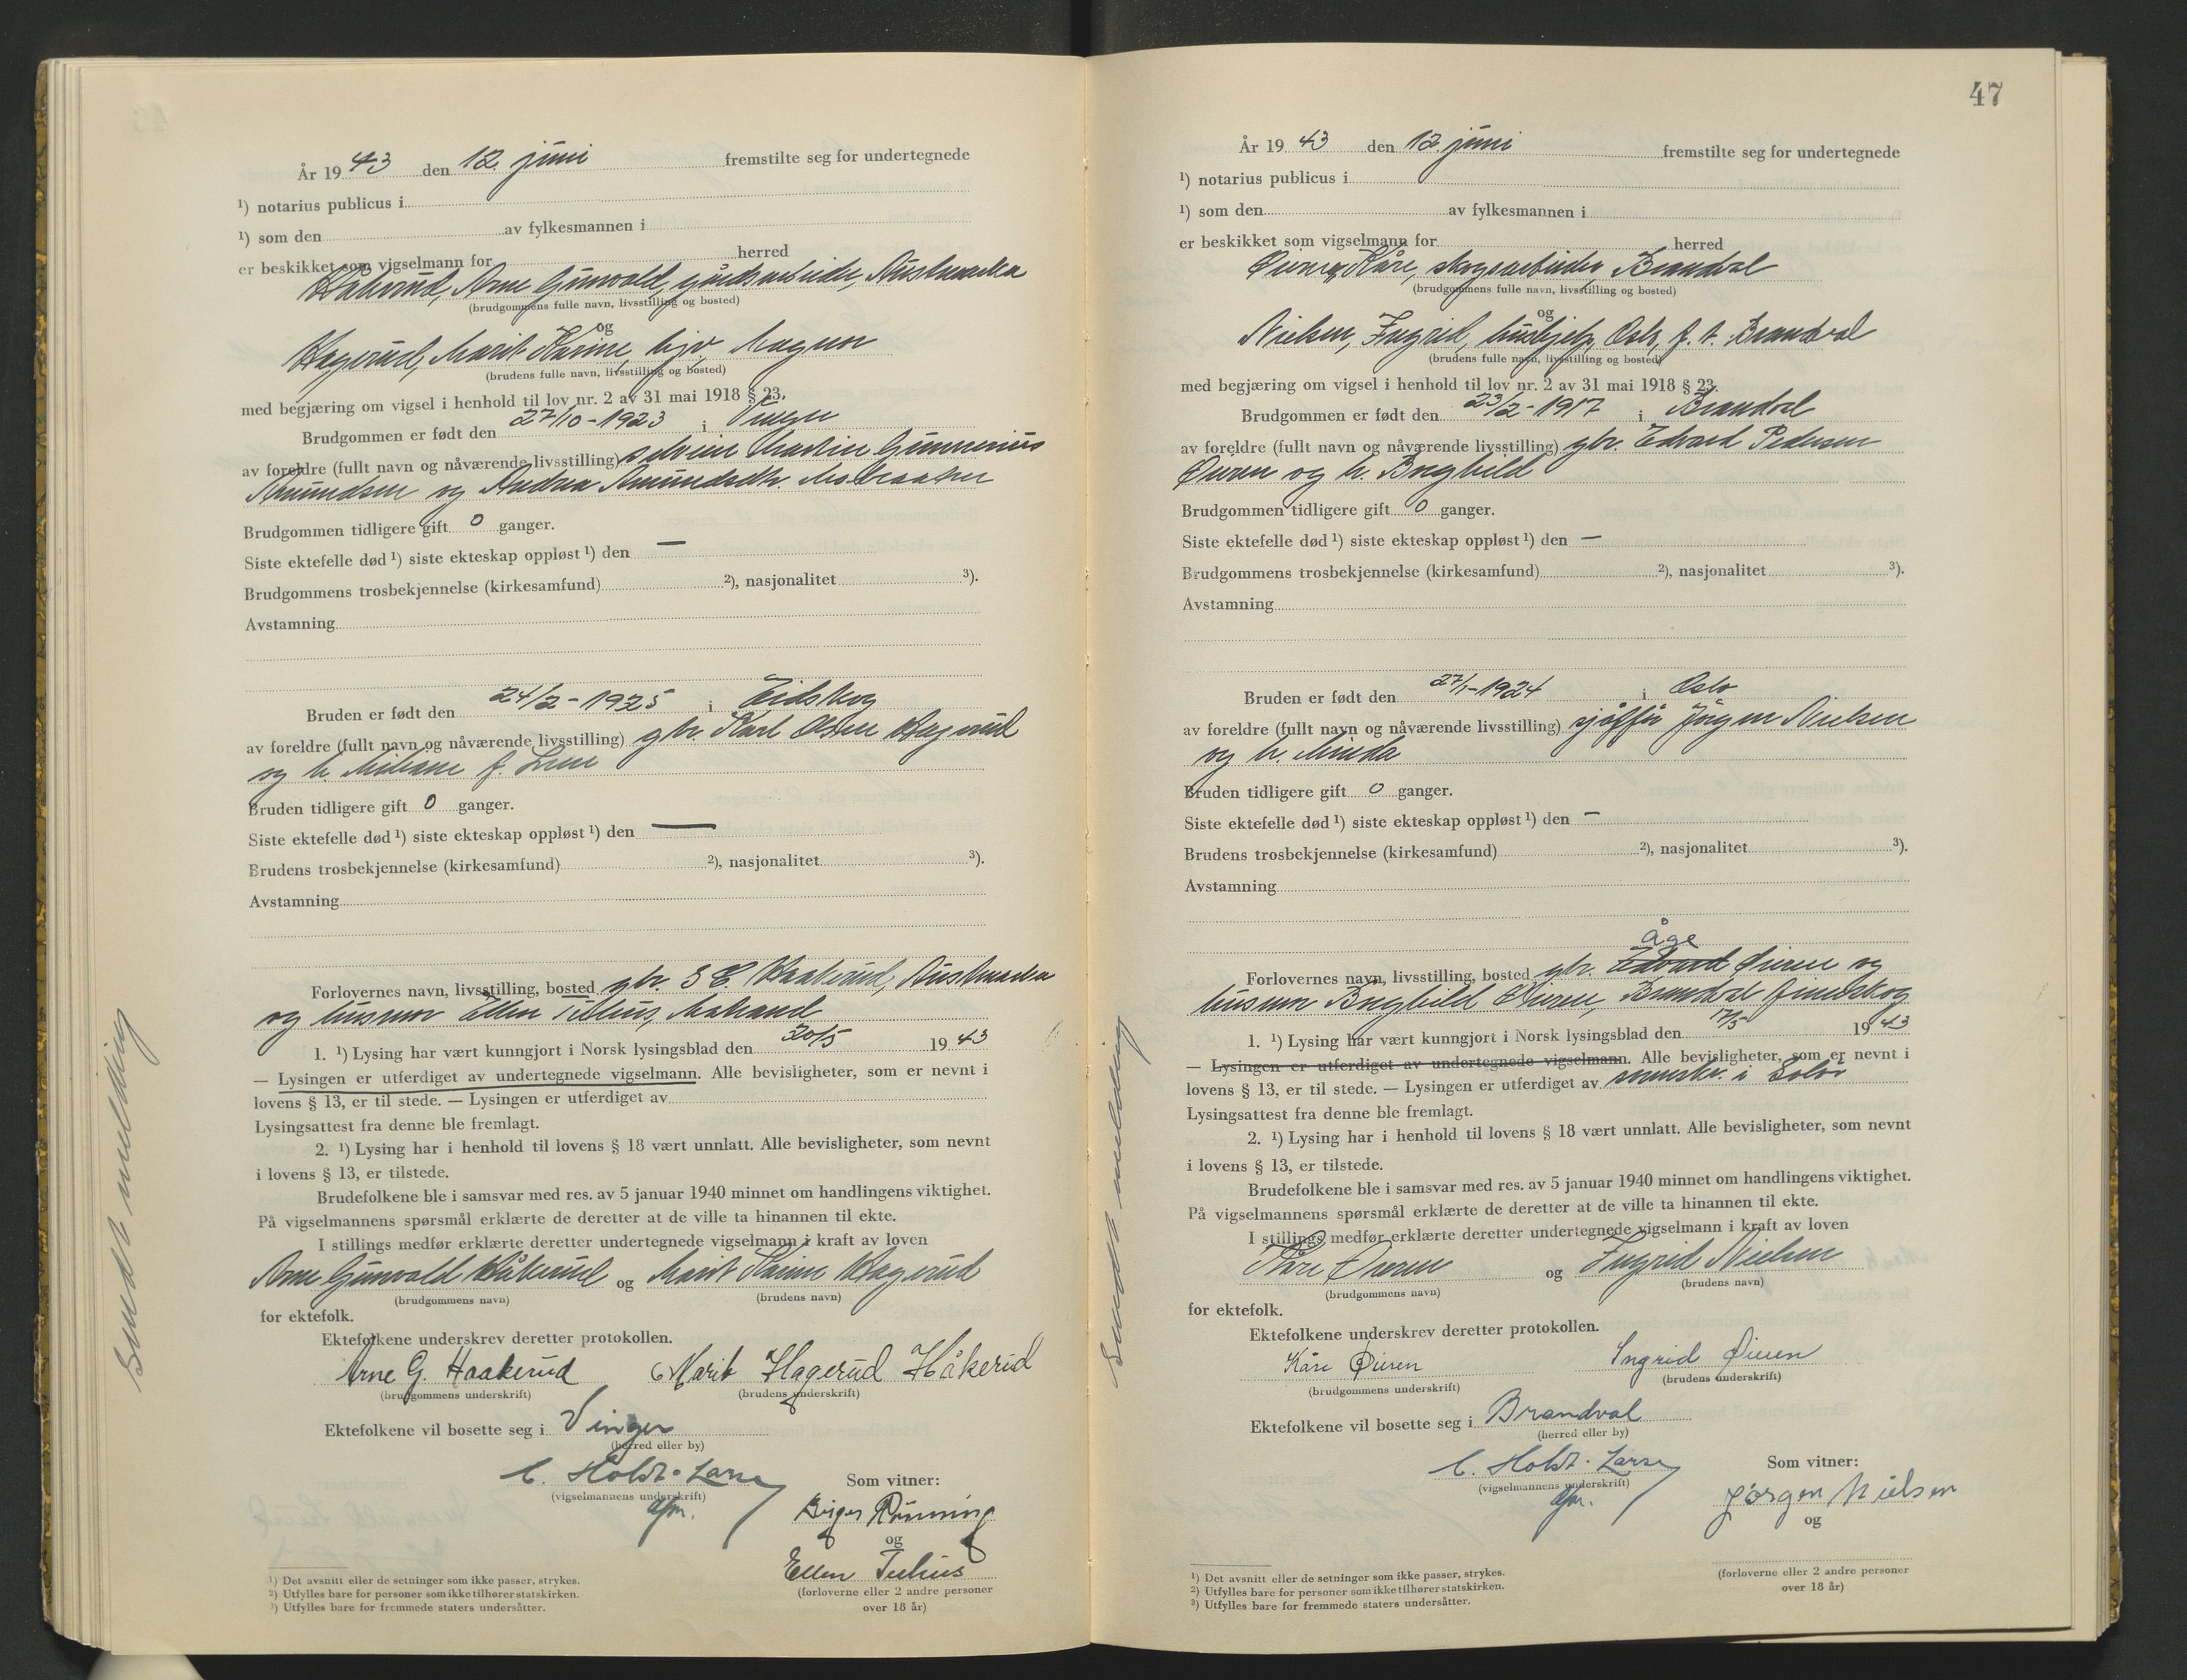 År 19 43 den 12. juni fremstilte seg for undertegnede
¹) notarius publicus i
¹) som den av fylkesmannen i
er beskikket som vigselmann for herred
Håkerud, Arne Gunvald, gårdsarbeider, Austmarka
(brudgommens fulle navn, livsstilling og bosted)
og
Hagerud, Marit Karine, hjv. Magnor
(brudens fulle navn, livsstilling og bosted)
med begjæring om vigsel i henhold til lov nr. 2 av 31 mai 1918 § 23.
Brudgommen er født den 27/10-1923 i Vinger
av foreldre (fullt navn og nåværende livsstilling) Martin Gunnerius
Amundsen og Andrea Amundsdtr.
Brudgommen tidligere gift 0 ganger.
Siste ektefelle død ¹) siste ekteskap oppløst ¹) den —
Brudgommens trosbekjennelse (kirkesamfund) ²), nasjonalitet ³).
Avstamning
Bruden er født den 24/2-1925 i Eidskog
av foreldre (fullt navn og nåværende livsstilling) gbr. Karl Olsen Hagerud
og h. f. Lene
Bruden tidligere gift 0 ganger.
Siste ektefelle død ¹) siste ekteskap oppløst ¹) den —
Brudens trosbekjennelse (kirkesamfund) ²), nasjonalitet ³).
Avstamning
Forlovernes navn, livsstilling, bosted gbr. Haakerud, Austmarka
og husmor Ellen Matrand
1. ¹) Lysing har vært kunngjort i Norsk lysingsblad den 20/5 19 43
— Lysingen er utferdiget av undertegnede vigselmann. Alle bevisligheter, som er nevnt i
lovens § 13, er til stede. — Lysingen er utferdiget av
Lysingsattest fra denne ble fremlagt.
2. ¹) Lysing har i henhold til lovens § 18 vært unnlatt. Alle bevisligheter, som nevnt
i lovens § 13, er tilstede.
Brudefolkene ble i samsvar med res. av 5 januar 1940 minnet om handlingens viktighet.
På vigselmannens spørsmål erklærte de deretter at de ville ta hinannen til ekte.
I stillings medfør erklærte deretter undertegnede vigselmann i kraft av loven
Arne Gunvald Håkerud og Marit Karine Hagerud
(brudgommens navn) (brudens navn)
for ektefolk.
Ektefolkene underskrev deretter protokollen.
Arne G. Haakerud Marit Hagerud Håkerud
(brudgommens underskrift) (brudens underskrift)
Ektefolkene vil bosette seg i Vinger
(herred eller by)
C. Holst-Larsen Som vitner:
(vigselmannens underskrift)
Birger Rønning
og
Ellen
(forloverne eller 2 andre personer
over 18 år)
¹) Det avsnitt eller de setninger som ikke passer, strykes.
²) Utfylles bare for personer som ikke tilhører statskirken.
³) Utfylles bare for fremmede staters undersåtter.
Sendt melding
47
År 19 43 den 12. juni fremstilte seg for undertegnede
¹) notarius publicus i
¹) som den av fylkesmannen i
er beskikket som vigselmann for herred
Øieren, Kåre, skogsarbeider, Brandval
(brudgommens fulle navn, livsstilling og bosted)
og
Nielsen, Ingrid, hushjelp, Oslo, f. t. Brandval
(brudens fulle navn, livsstilling og bosted)
med begjæring om vigsel i henhold til lov nr. 2 av 31 mai 1918 § 23.
Brudgommen er født den 23/2-1917 i Brandval
av foreldre (fullt navn og nåværende livsstilling) gbr. Edvard Pedersen
Øieren og h. Borghild
Brudgommen tidligere gift 0 ganger.
Siste ektefelle død ¹) siste ekteskap oppløst ¹) den —
Brudgommens trosbekjennelse (kirkesamfund) ²), nasjonalitet ³).
Avstamning
Bruden er født den 27/1-1924 i Oslo
av foreldre (fullt navn og nåværende livsstilling) sjåffør Jørgen Nielsen
og h. Minda
Bruden tidligere gift 0 ganger.
Siste ektefelle død ¹) siste ekteskap oppløst ¹) den —
Brudens trosbekjennelse (kirkesamfund) ²), nasjonalitet ³).
Avstamning
åge
Forlovernes navn, livsstilling, bosted gbr. Edvard Øieren og
husmor Borghild Øieren, Brandval finnskog
1. ¹) Lysing har vært kunngjort i Norsk lysingsblad den 17/5 19 43
— Lysingen er utferdiget av undertegnede vigselmann. Alle bevisligheter, som er nevnt i
lovens § 13, er til stede. — Lysingen er utferdiget av sorenskr. i Solør
Lysingsattest fra denne ble fremlagt.
2. ¹) Lysing har i henhold til lovens § 18 vært unnlatt. Alle bevisligheter, som nevnt
i lovens § 13, er tilstede.
Brudefolkene ble i samsvar med res. av 5 januar 1940 minnet om handlingens viktighet.
På vigselmannens spørsmål erklærte de deretter at de ville ta hinannen til ekte.
I stillings medfør erklærte deretter undertegnede vigselmann i kraft av loven
Kåre Øieren og Ingrid Nielsen
(brudgommens navn) (brudens navn)
for ektefolk.
Ektefolkene underskrev deretter protokollen.
Kåre Øieren Ingrid Øieren
(brudgommens underskrift) (brudens underskrift)
Ektefolkene vil bosette seg i Brandval
(herred eller by)
C. Holst-Larsen Som vitner:
(vigselmannens underskrift)
Jørgen Nielsen
og
(forloverne eller 2 andre personer
over 18 år)
¹) Det avsnitt eller de setninger som ikke passer, strykes.
²) Utfylles bare for personer som ikke tilhører statskirken.
³) Utfylles bare for fremmede staters undersåtter.
Sendt melding